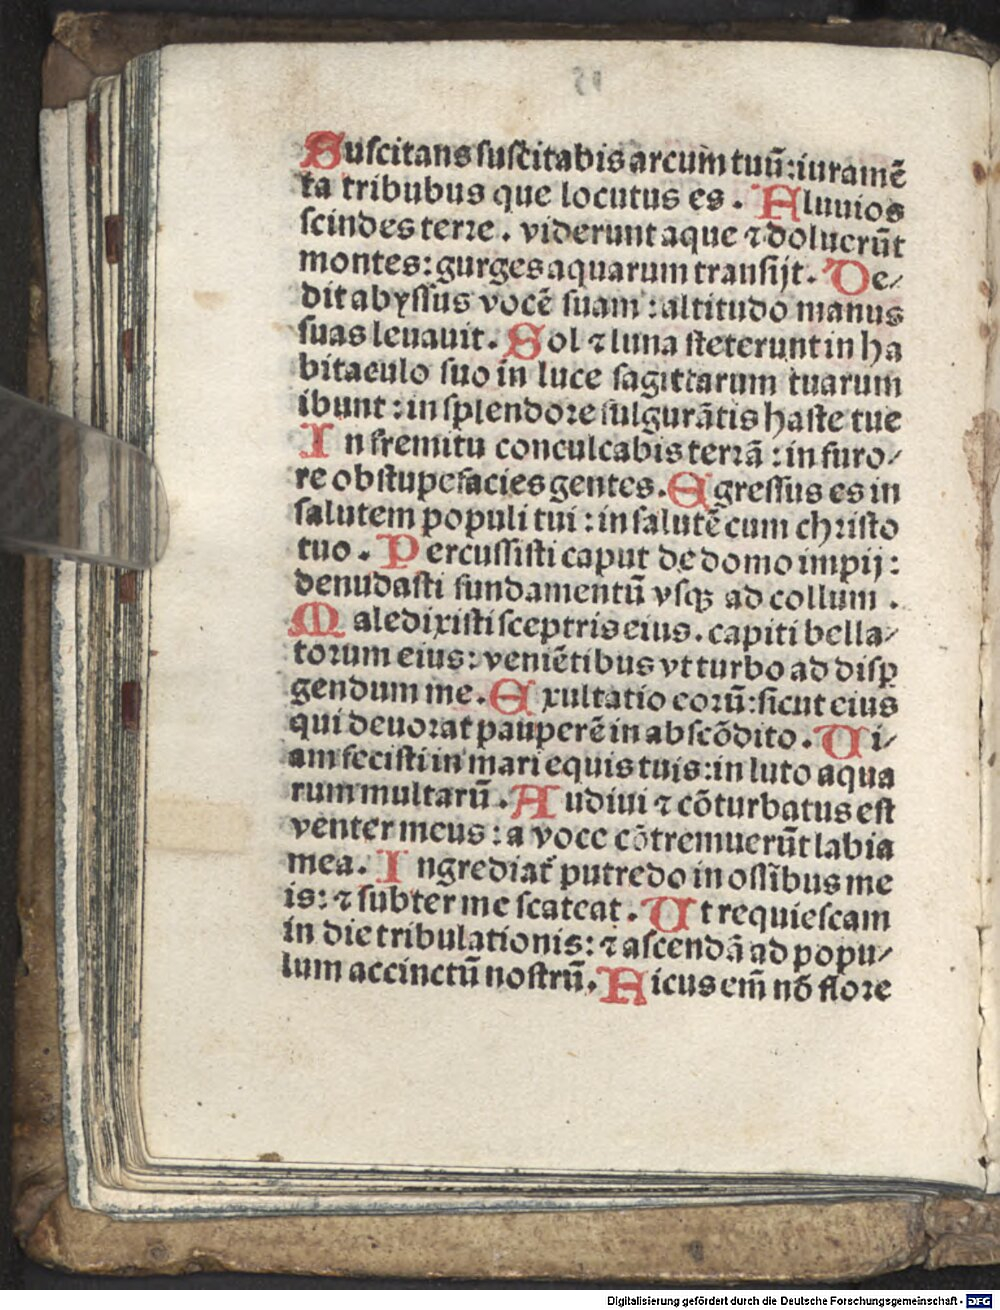 Suſcitans ſuſcitabis arcum tuū: iuramē
ta tribubus que locutus es. Fluuios
ſcindes terre. viderunt aque ⁊ doluerūt
montes: gurges aquarum tranſijt. De⸗
dit abyſſus vocē ſuam: altitudo manus
ſuas leuauit. Sol ⁊ luna ſteterunt in ha
bitaculo ſuo in luce ſagittarum tuarum
ibunt: in ſplendore fulgurātis haſte tue
In fremitu conculcabis terrā: in furo⸗
re obſtupefacies gentes. Egreſſus es in
ſalutem populi tui: in ſalutē cum chriſto
tuo. Percuſſiſti caput de domo impij:
denudaſti fundamentū vſqꝫ ad collum.
Maledixiſti ſceptris eius. capiti bella⸗
torum eius: veniētibus vt turbo ad diſꝑ
gendum me. Exultatio eorū: ſicut eius
qui deuorat pauperē in abſcōdito. Vi⸗
am feciſti in mari equis tuis: in luto aqua
rum multarū. Audiui ⁊ cōturbatus eſt
venter meus: a voce cōtremuerūt labia
mea. Ingrediat᷑ putredo in oſſibus me
is: ⁊ ſubter me ſcateat. Vt requieſcam
in die tribulationis: ⁊ aſcendā ad popu⸗
lum accinctū noſtrū. Ficus em̄ nō flore
Digitalisierung gefördert durch die Deutsche Forschungsgemeinschaft - DFG